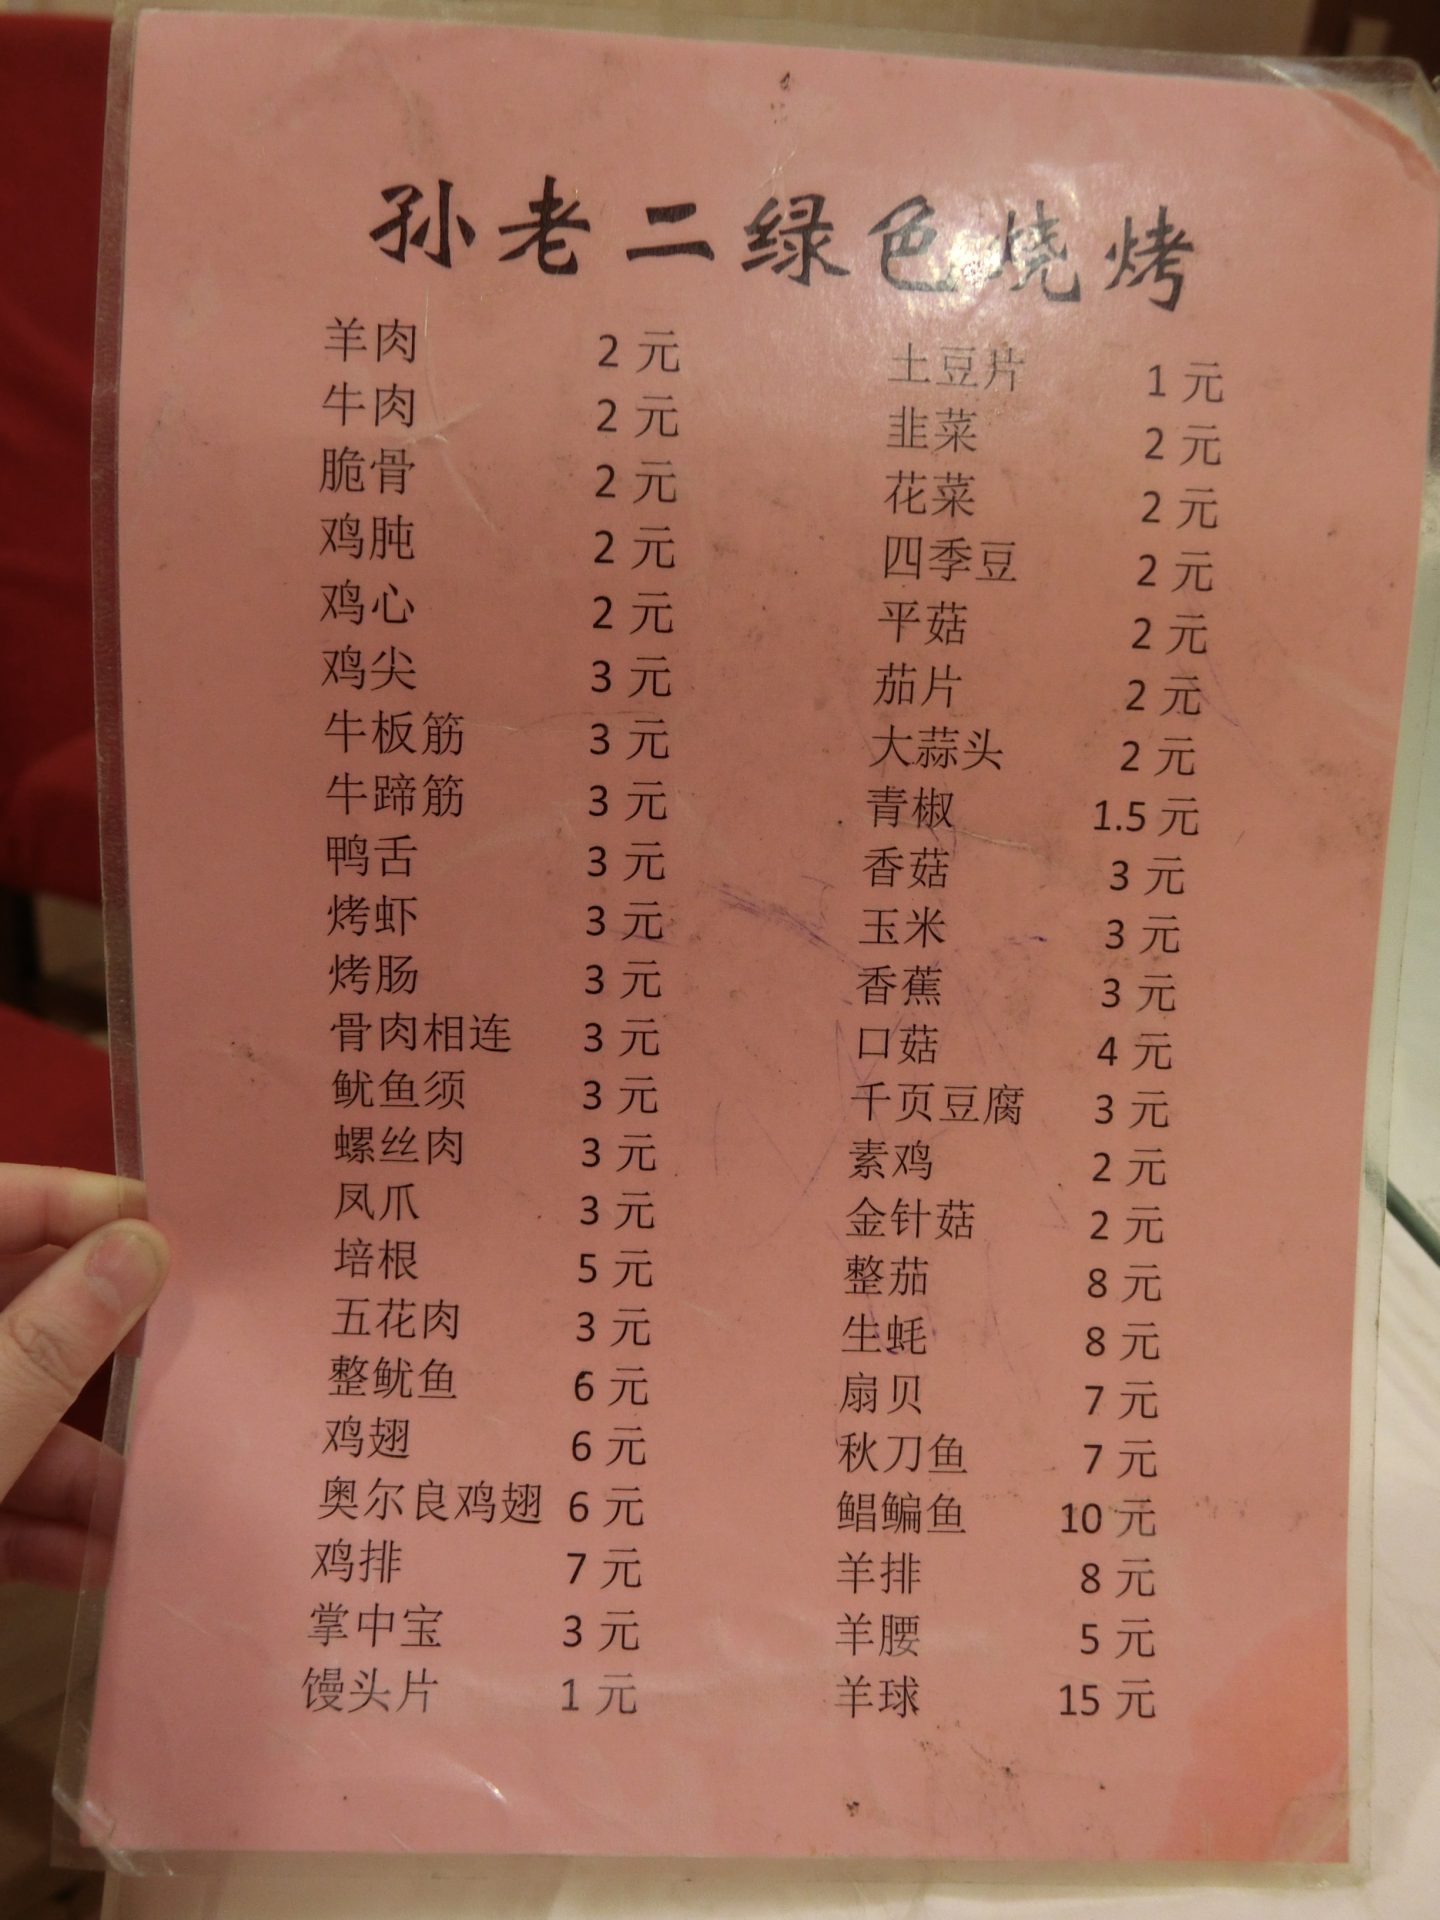 孙老二绿色烧烤
羊肉 2 元
牛肉 2 元
脆骨 2 元
鸡肫 2 元
鸡心 2 元
鸡尖 3 元
牛板筋 3 元
牛蹄筋 3 元
鸭舌 3 元
烤虾 3 元
烤肠 3 元
骨肉相连 3 元
鱿鱼须 3 元
螺丝肉 3 元
凤爪 3 元
培根 5 元
五花肉 3 元
整鱿鱼 6 元
鸡翅 6 元
奥尔良鸡翅 6 元
鸡排 7 元
掌中宝 3 元
馒头片 1 元
土豆片 1 元
韭菜 2 元
花菜 2 元
四季豆 2 元
平菇 2 元
茄片 2 元
大蒜头 2 元
青椒 1.5 元
香菇 3 元
玉米 3 元
香蕉 3 元
口菇 4 元
千页豆腐 3 元
素鸡 2 元
金针菇 2 元
整茄 8 元
生蚝 8 元
扇贝 7 元
秋刀鱼 7 元
鲳鳊鱼 10 元
羊排 8 元
羊腰 5 元
羊球 15 元